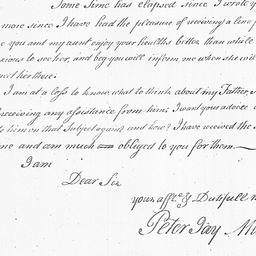 Some time has elapsed since I wrote y
more since I have had the pleasure of receiving a line f
you and my aunt enjoy your healths better than while
xious to see her, and beg you will inform me when she wil
eet her there.
I am at a loss to know, what to think about my Father, 
receiving any assistance from him; I want your advice
to him on that Subject again? and how? I have received the
me and am much obliged to you for them —
I am
Dear Sir
your affte. & Dutifull n
Peter Jay M